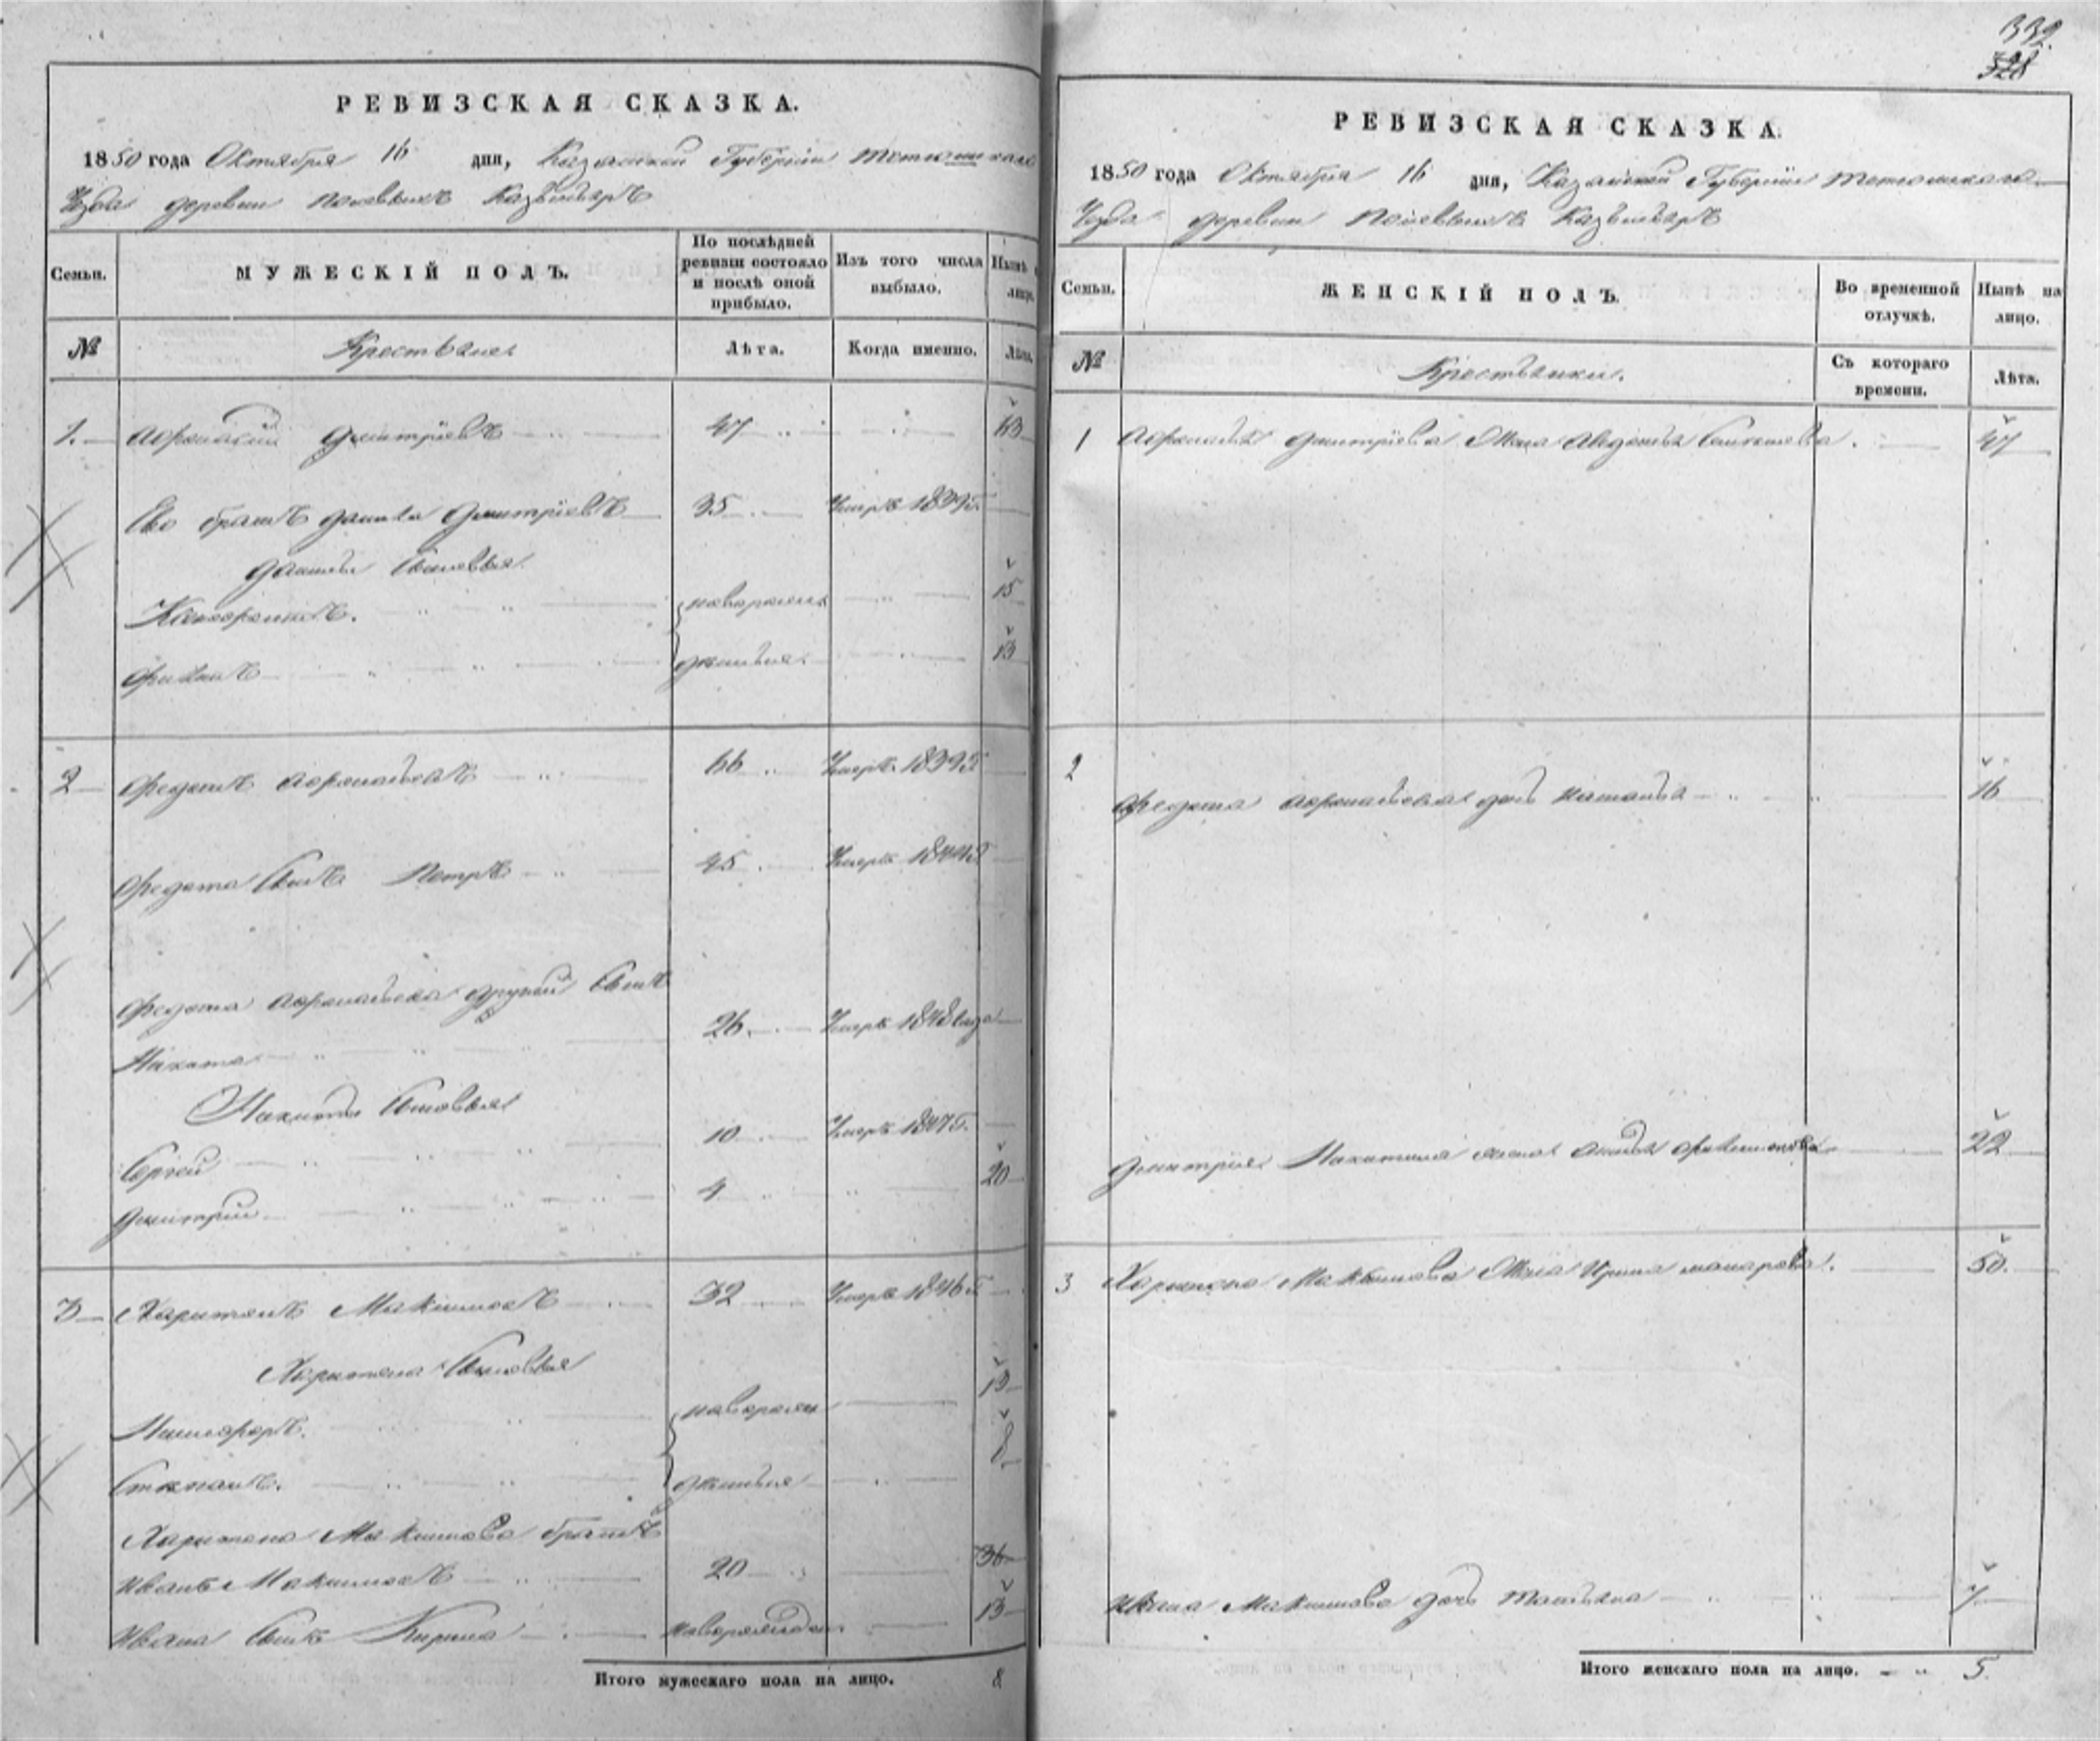 332.
328
РЕВИЗСКАЯ СКАЗКА.
1850 года Октября 16 дня, Казанской Губернии Тетюшскаго
Уезда деревни Полевыхъ
Семьи.
МУЖЕСКІЙ ПОЛЪ.
По послѣдней ревизіи состояло и послѣ оной прибыло.
Изъ того числа выбыло.
Нынѣ
лицо.
№
Крестьяне
Лѣта.
Когда именно.
Лѣта.
1. Афонасій Дмитріевъ 47
Ево братъ Данила Дмитріевъ 35 Умеръ 1839 г.
Данилы сыновья
новорожден 15
дённыя 13
2 Федотъ Афонасьевъ 66 Умеръ 1839 г.
Федота сынъ Петръ 45 Умеръ 1844 г.
Федота Афонасьева другой сынъ
Никита 26 Умеръ 1848 года
Никиты сыновья
Сергей 10 Умеръ 1847 г.
Дмитрій 4 20
3 Харитонъ Максимовъ 32 Умеръ 1846 г.
Харитона сыновья
Никифоръ. новорожден 13
Степанъ. дённыя 8
Харитона Максимова братъ
Иванъ Максимовъ 20 36
Ивана сынъ Кирила новорожден 13
Итого мужескаго пола на лицо. 8
РЕВИЗСКАЯ СКАЗКА.
1850 года Октября 16 дня, Казанской Губерніи Тетюшскаго
Уезда деревни Полевыхъ
Семьи.
ЖЕНСКІЙ ПОЛЪ.
Во временной отлучкѣ.
Нынѣ на лицо.
№
Крестьянки.
Съ котораго времени.
Лѣта.
1 Афонасья Дмитріева жена Авдотья 47
2 Федота Афонасьева дочь Наталья 16
Дмитрія Никитина жена 22
3 Харитона Максимова жена Ирина Макарова. 50.
Ивана Максимова дочь Татьяна 7
Итого женскаго пола на лицо. 5.